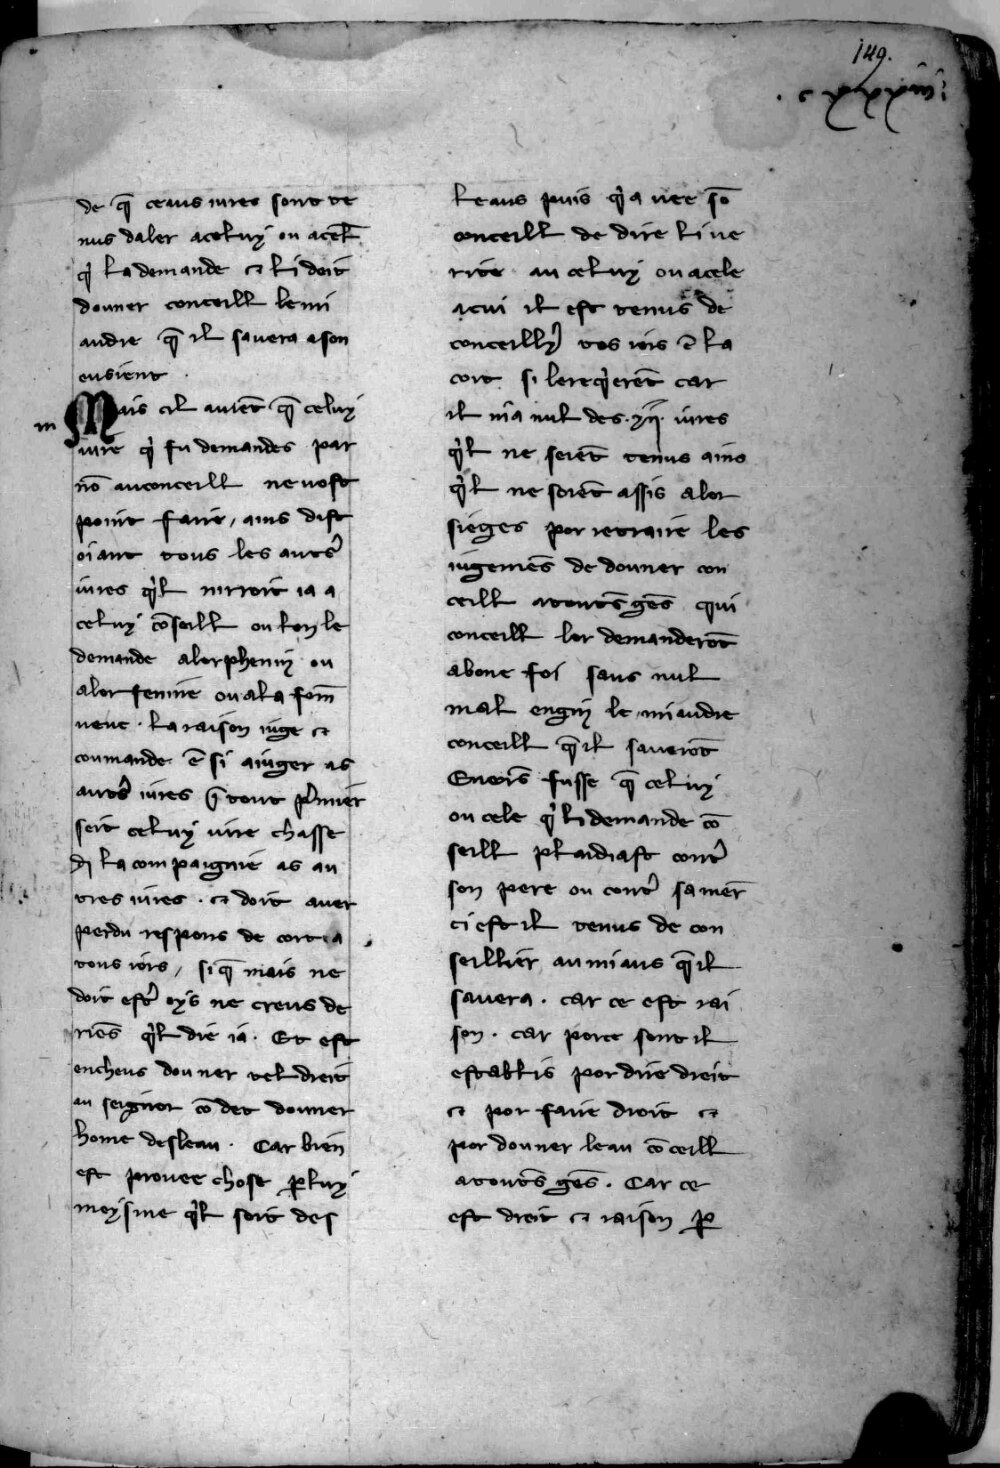 149.
c xxxiiii
de q̄ ceaus iures sont te
nus daler aceluy ou acel̄
q̇ la demande ⁊ li doit
donner conceill le mi
audre q̄ il savera a son
ensient .
m
Mais cil aurēt q̄ celuy
iure q̇ fu demandes par
nō au conceill ne vost
point faire, ains dist
oiant tous les autr̓
iures q̇l nirroit ia a
celuy cōseill ou lon le
demande alorphenin ou
alor femme ou ala fem̄
veve . la raison iuge ⁊
coumande ē si a iuger as
autr̓s iures q̄ tout pr̓mier
seit celuy iure chasse
de la compaignie as au
tres iures . ⁊ doit aver
perdu respons de cort a
tous iors, si q̄ mais ne
doit estr̓ oys ne creus de
riēs q̇l die ia . Et est
encheus donner tel dreit
au seignor cō det donner
home desleau . Car bien
est provee chose ꝑ luy
meysme q̇l soit des
leaus puis q̇ a vee sō
conceill de dire li ve
rite au celuy ou a cele
a cui il est tenus de
conceillȳ tos iors ē la
cort si le req̇erēt car
il nia nul des . iures
q̇l ne seiēt tenus ains
q̇l ne soiēt assis a lor
sieges por retraire les
iugemēs de donner con
ceill a toutēs gēs qui
conceill lor demanderōt
a bone foi sans nul
mal engin le miaudre
conceill q̄ il saverōt
Encōrs fusse q̄ celuy
ou cele q̇ li demande cō
seill plaidiast contr̓
son pere ou contr̓ sa mer̄
ci est il tenus de con
seillier au miaus q̄ il
savera . car ce est rai
son . car porce sont il
establis por dire dreit
⁊ por faire droit ⁊
por donner leau cōceill
a toutēs gēs . Car ce
est dreit ⁊ raison ꝑ